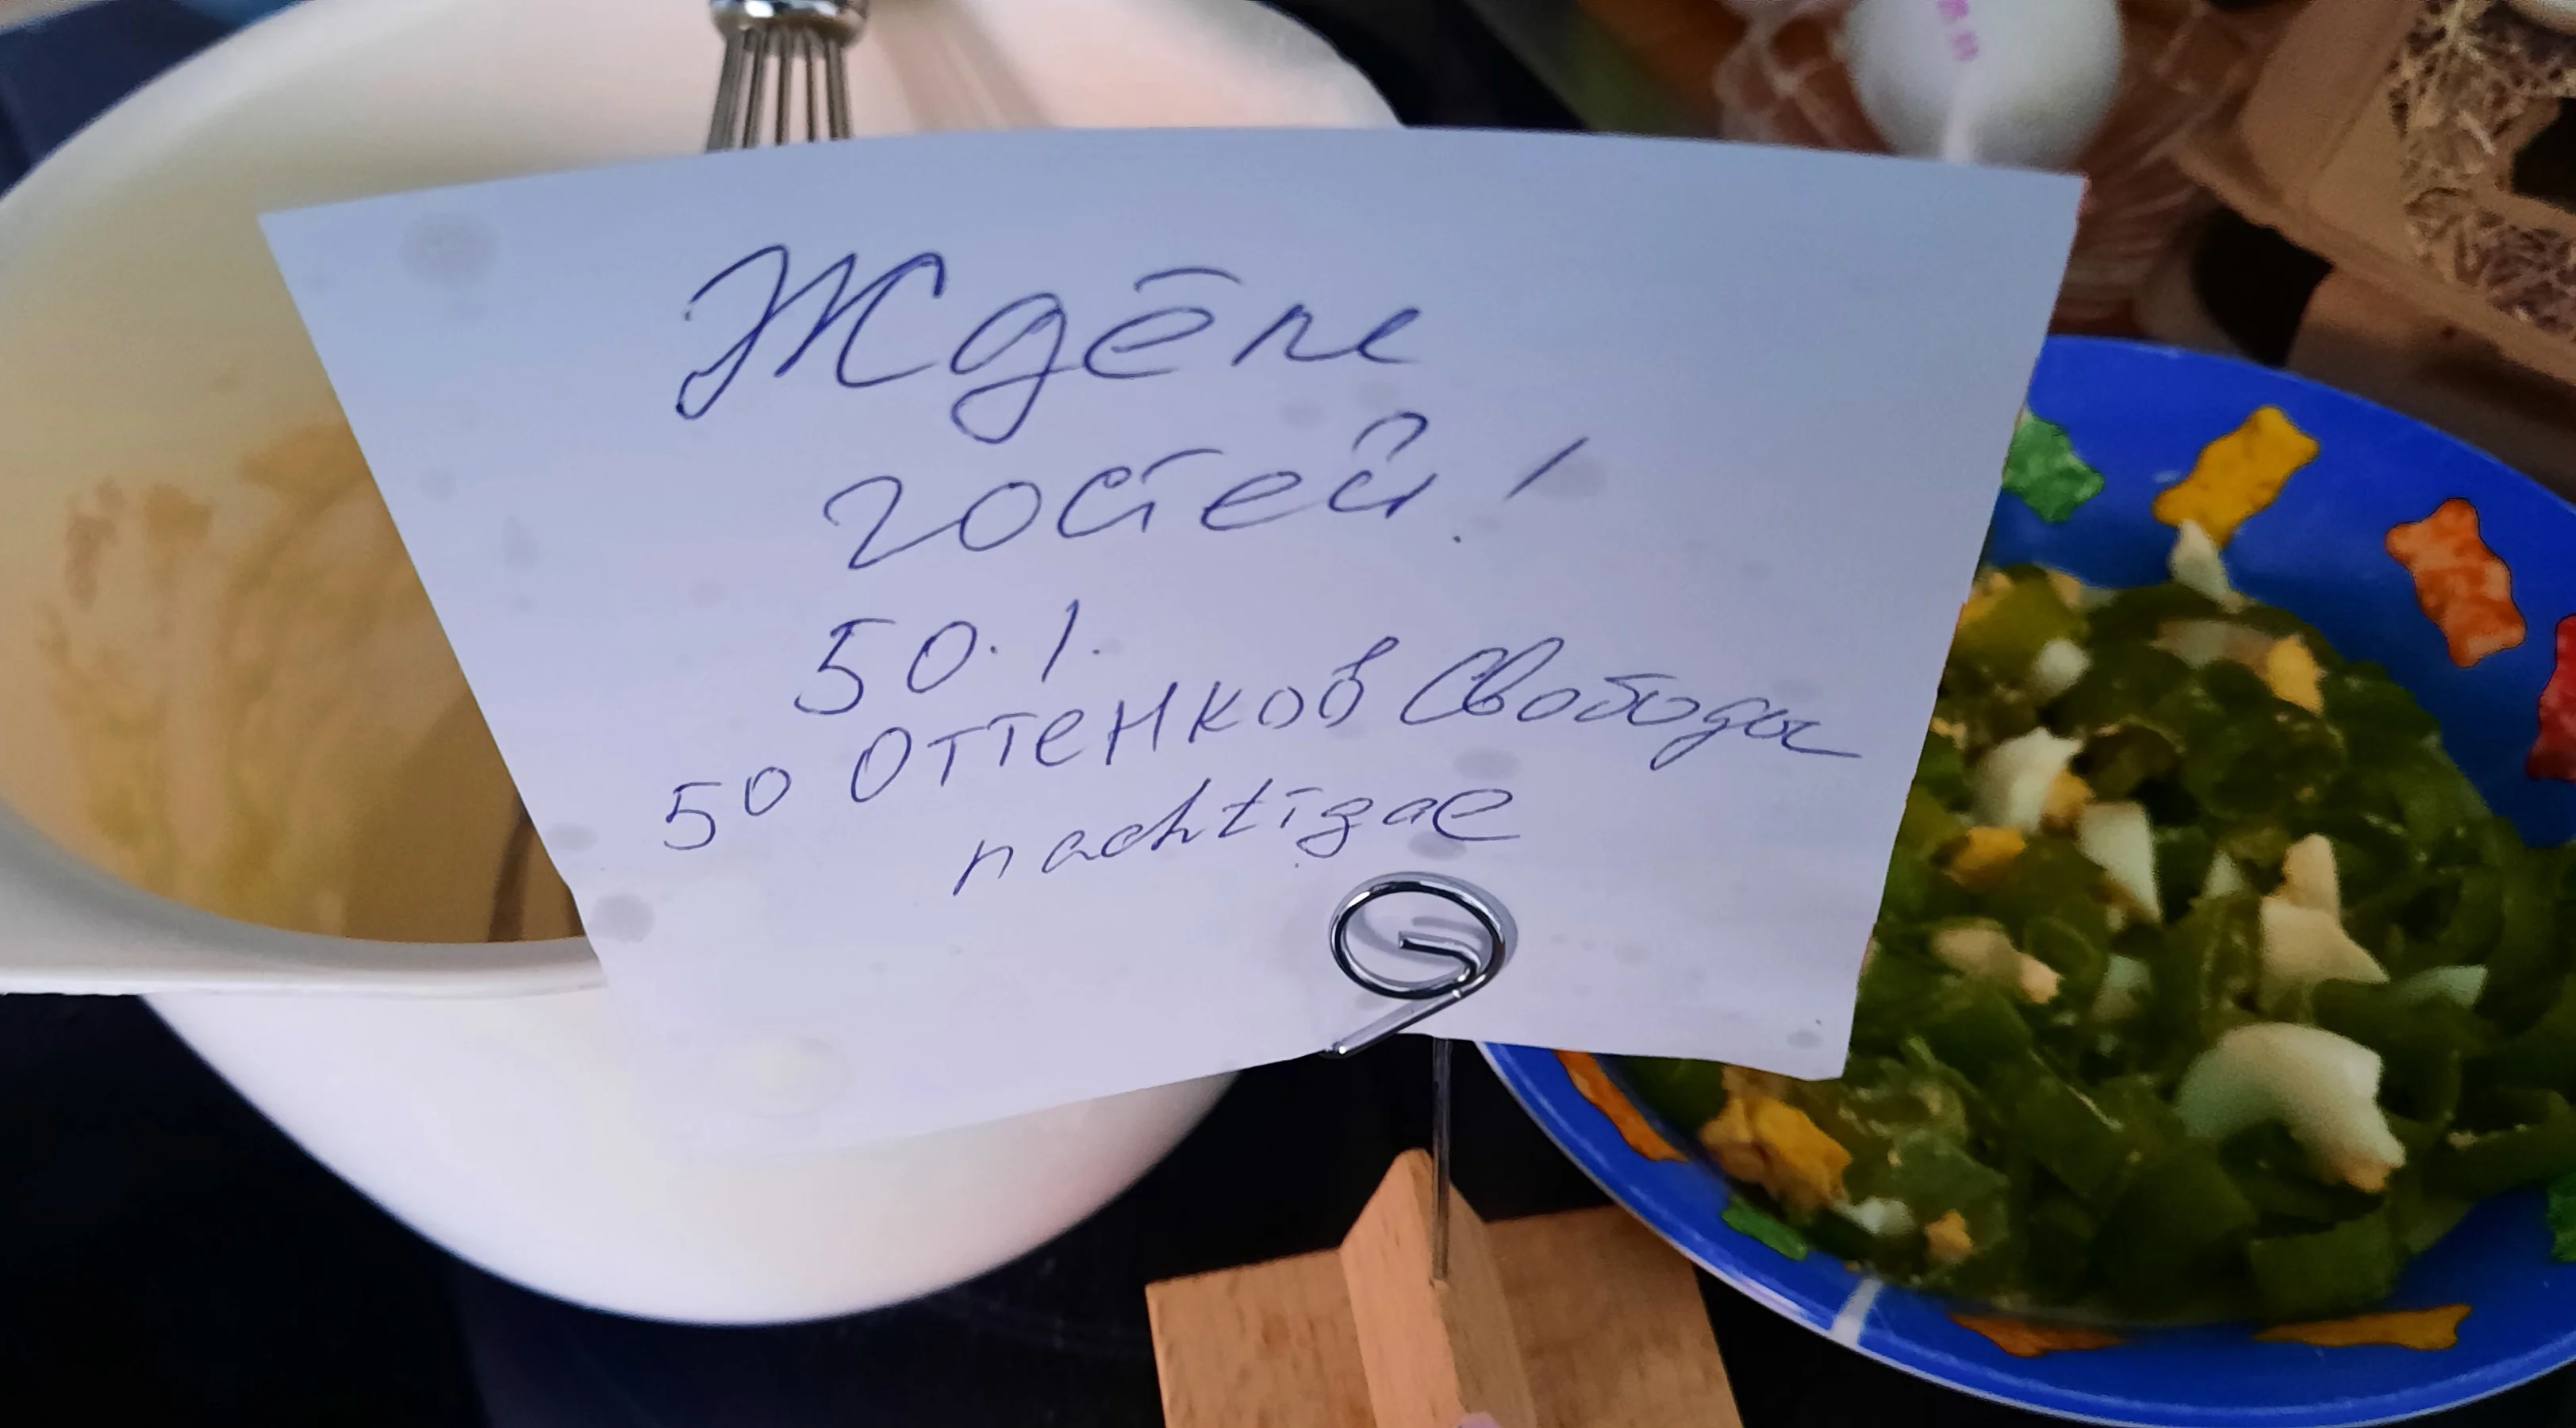 Ждём
гостей!
50.1.
50 Оттенков Свободы
nachtigal